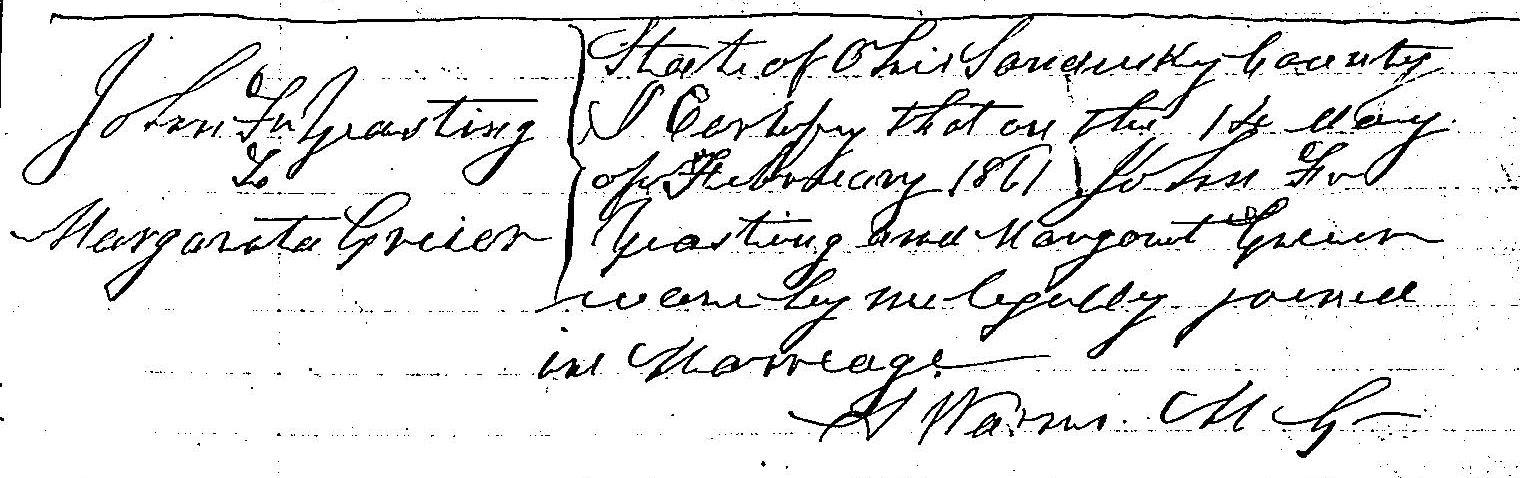 John Fr Yeasting
To
Margarata Greier
State of Ohio Sandusky County
I Certify that on the 14 day
of February 1861 John Fr
Yeasting and Margaret Greier
ware by me legally joined
in Marriage
M G